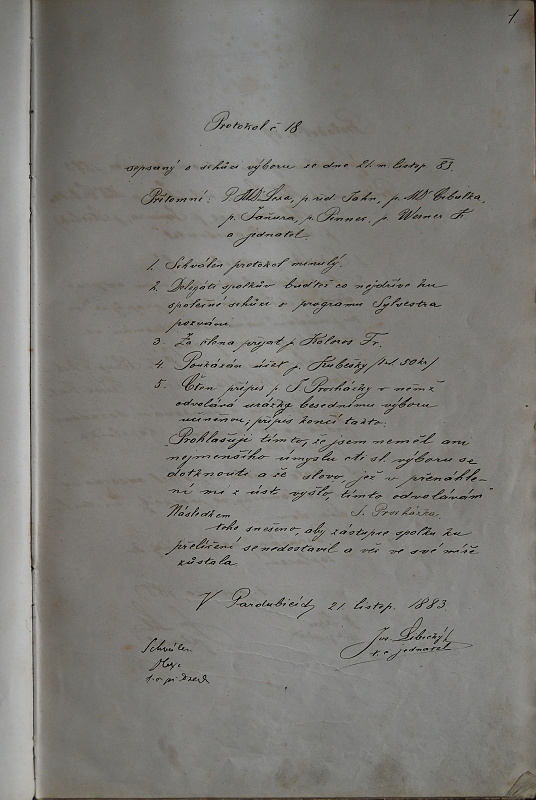 1.
Protokol č 18
sepsaný o schůzi výboru ze dne 21. m. listop. 83.
Přítomni: P. MDr , p. řed. Jahn, p. MDr Cibulka,
p. Jaňura, p. Penner, p. Werner F.
a jednatel.
1. Schválen protokol minulý.
2. Delegáti spolkův buďtež co nejdříve ku
společné schůzi o programu Sylvestra
pozváni.
3. Za člena přijat p. Fr.
4. Poukázán účet p. Kubešky 50 kr)
5. Čten přípis p J. Procházky v němž
odvolává urážky besednímu výboru
učiněnou; přípis končí takto:
Prohlašuji tímto, že jsem neměl ani
nejmenšího úmyslu cti sl. výboru se
dotknouti a že slovo, jež v přenáhle-
ní mi z úst vyšlo, tímto odvolávám"
J. Procházka.
Následkem
toho snešeno, aby zástupce spolku ku
přelíčení se nedostavil a věc ve své míře
zůstala
V Pardubicích 21. listop. 1883
Jos.
t. č. jednatel
Schválen